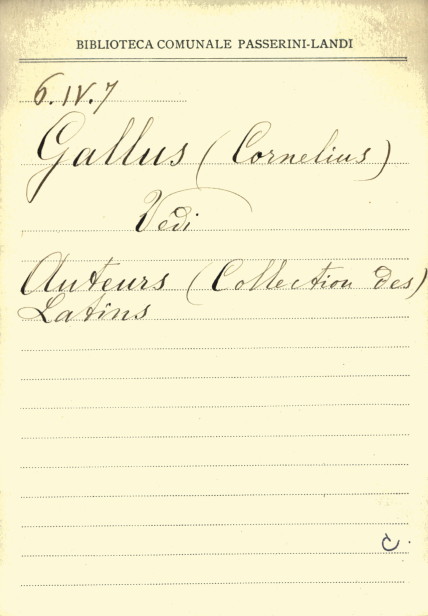 BIBLIOTECA COMUNALE PASSERINI-LANDI
6.IV.7
Gallus (Cornelius)
Vedi
Auteurs (Collection des)
Latins
C.